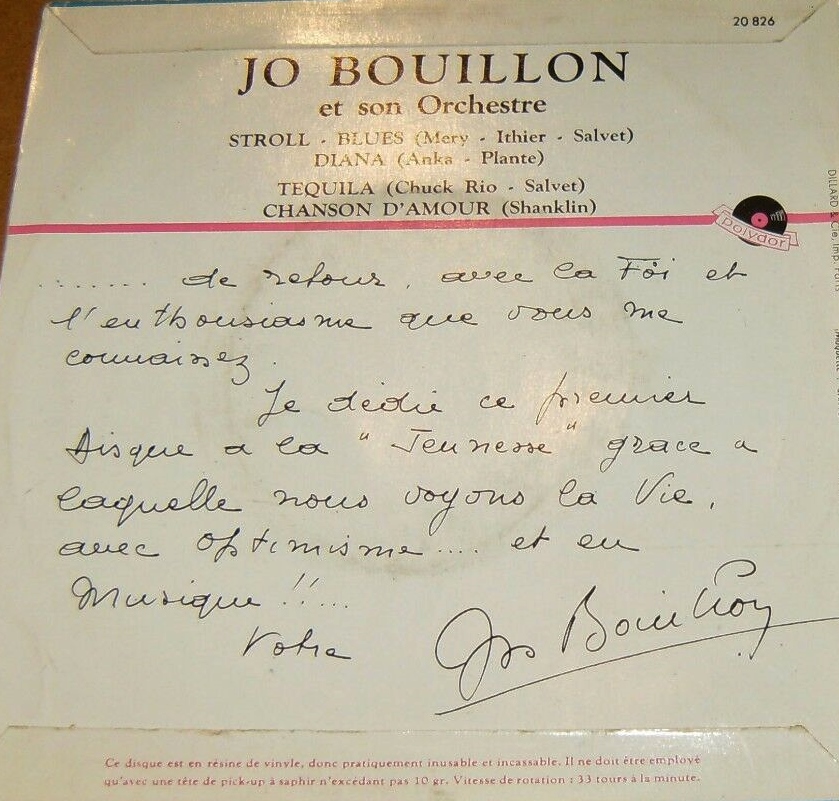 20 826
JO BOUILLON
et son Orchestre
STROLL - BLUES (Mery - Ithier - Salvet)
DIANA (Anka - Plante)
TEQUILA (Chuck Rio - Salvet)
CHANSON D'AMOUR (Shanklin)
Polydor
DILLARD & Cie. Imp.
....... de retour, avec la Foi et
l'enthousiasme que vous me
connaissez.
Je dédie ce premier
Disque a la "Jeunesse" grace a
laquelle nous voyons la Vie,
avec Optimisme.... et en
Musique !!...
Votre Jo Bouillon
Ce disque est en résine de vinyle, donc pratiquement inusable et incassable. Il ne doit être employé
qu'avec une tête de pick-up à saphir n'excédant pas 10 gr. Vitesse de rotation : 33 tours à la minute.